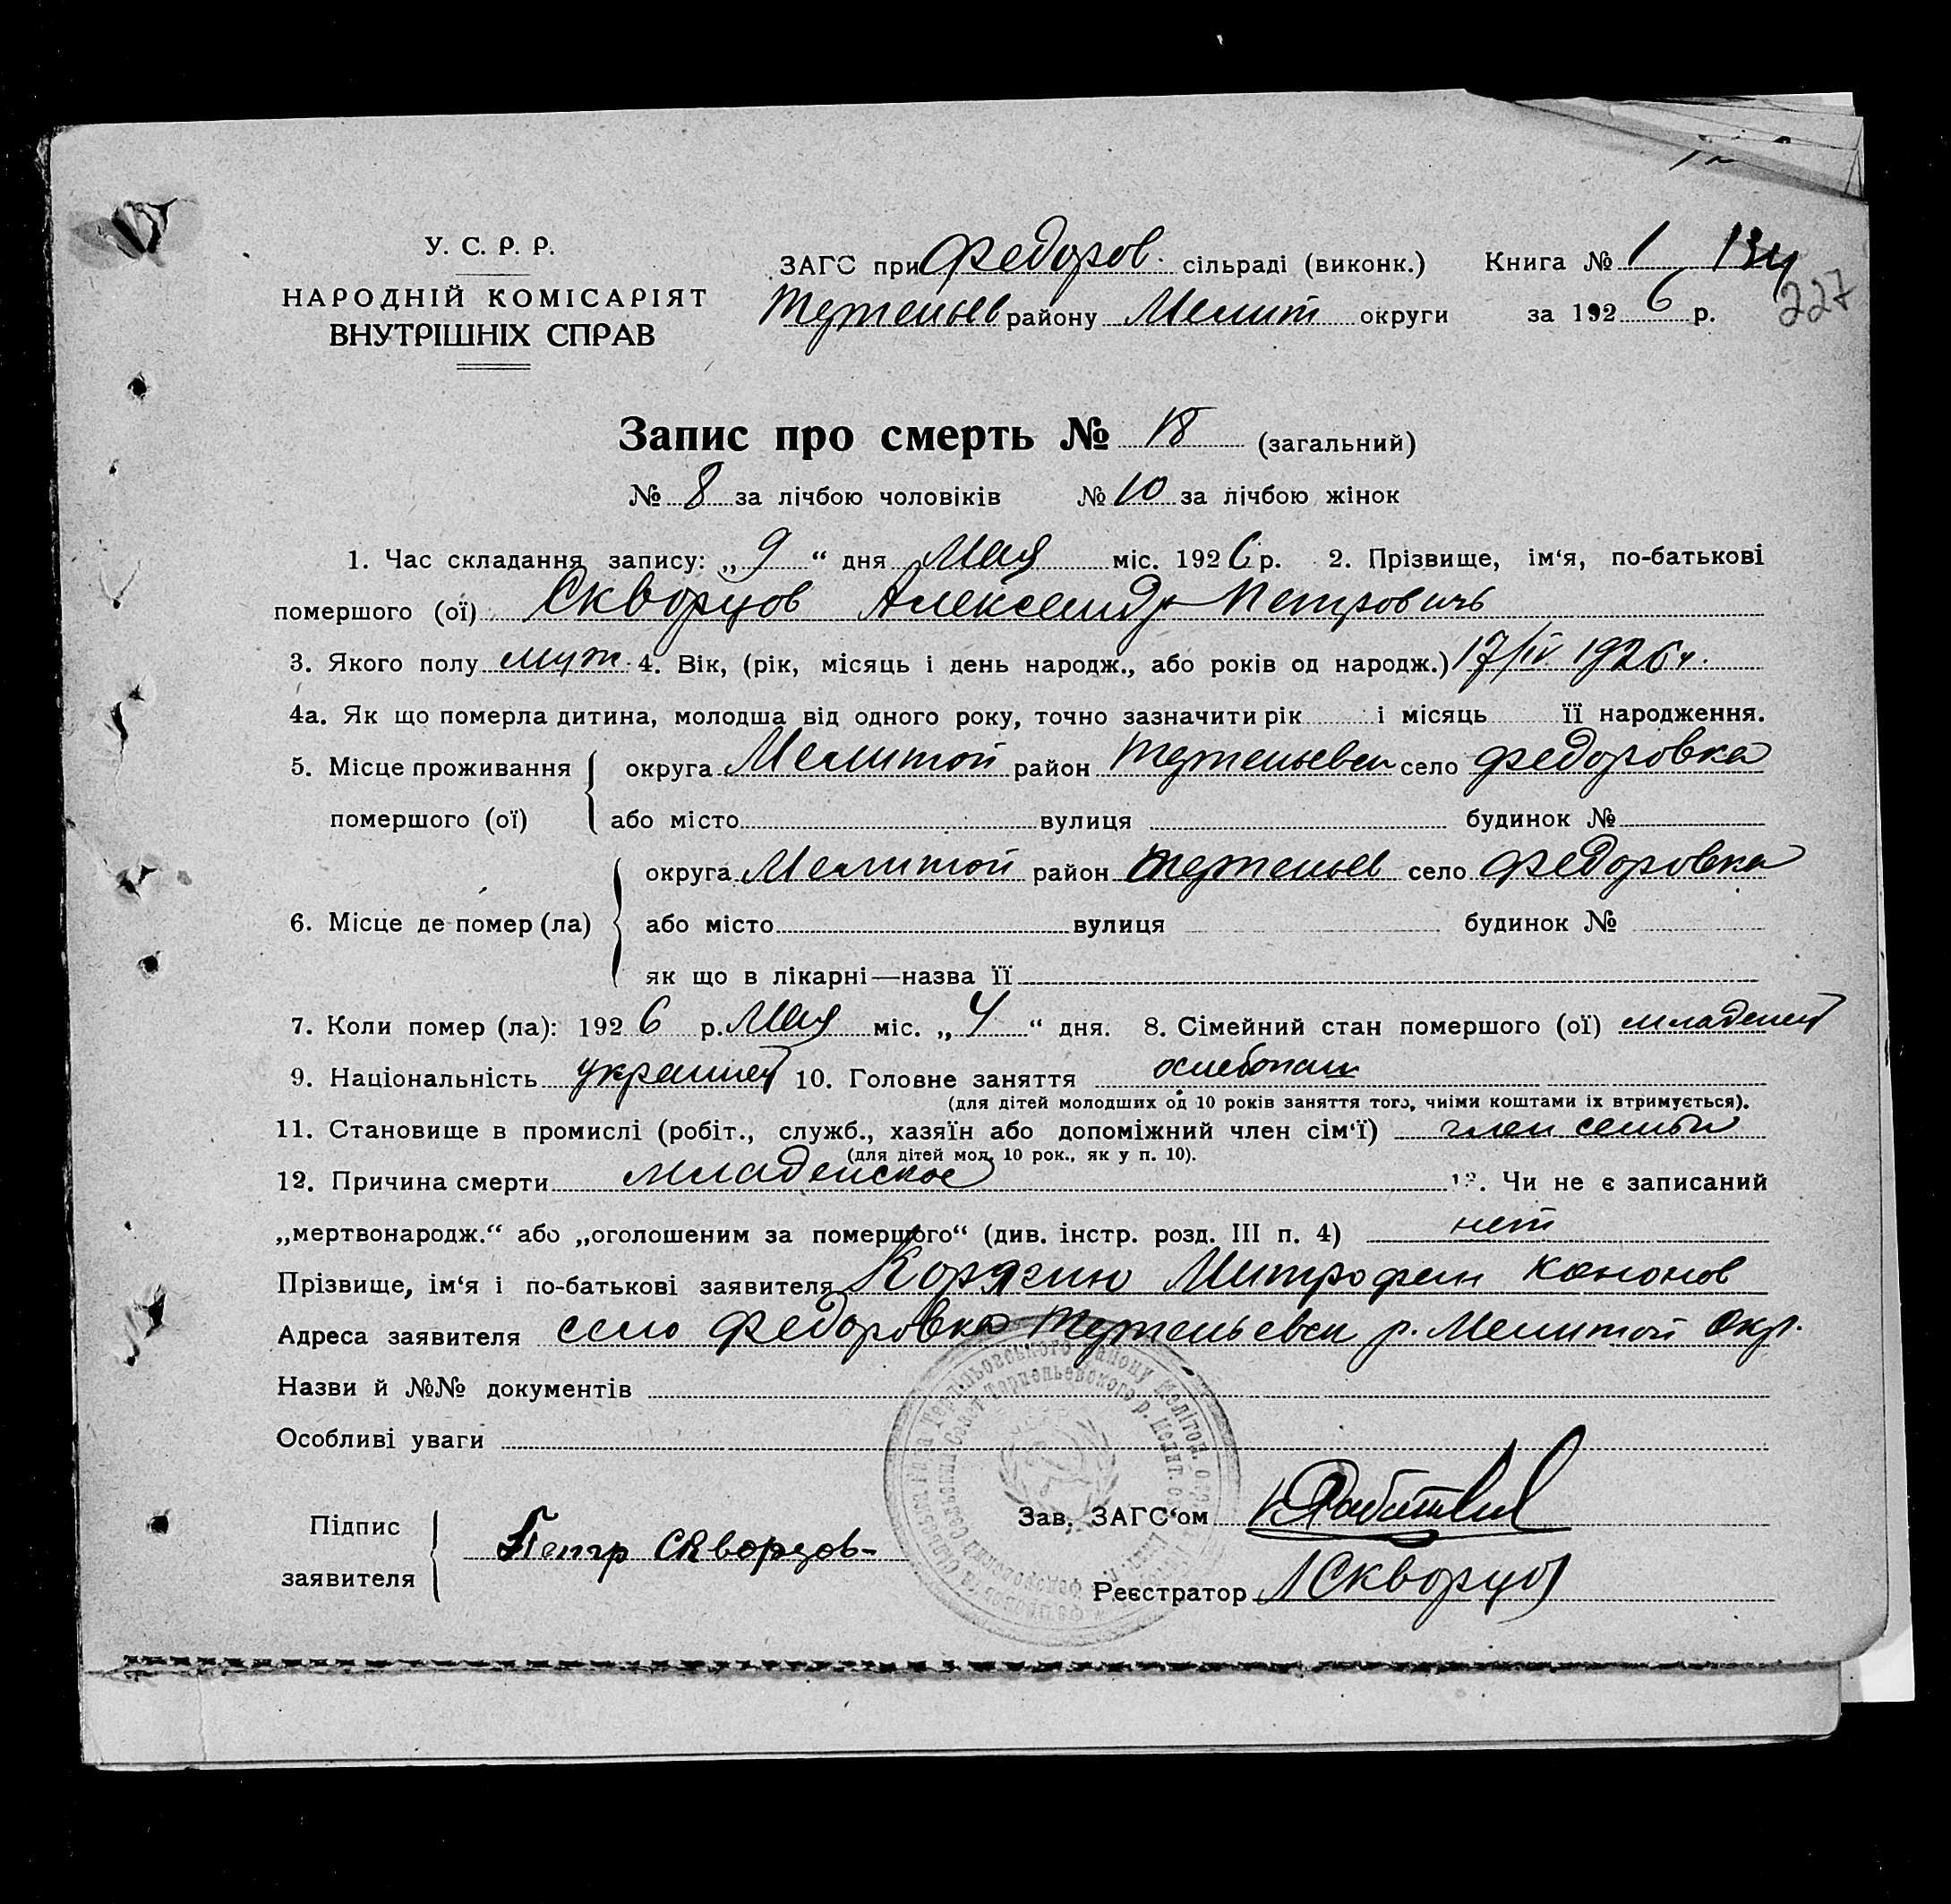 У. С. Р. Р.
НАРОДНІЙ КОМІСАРІЯТ
ВНУТРІШНІХ СПРАВ
ЗАГС при Федоров. сільраді (виконк.) Книга № 1 134
Терпеньев району Мелит округи за 1926 р. 227
Запис про смерть № 18 (загальний)
№ 8 за лічбою чоловіків № 10 за лічбою жінок
1. Час складання запису: „9“ дня Мая міс. 1926 р. 2. Прізвище, ім‘я, по-батькові
помершого (ої) Скворцов Александр Петровичь
3. Якого полу муж 4. Вік, (рік, місяць і день народж., або років од народж.) 17/IV 1926 г.
4а. Як що померла дитина, молодша від одного року, точно зазначити рік і місяць її народження.
5. Місце проживання округа Мелитой район Терпеньевск село Федоровка
помершого (ої) або місто вулиця будинок №
округа Мелитой район Терпеньев село Федоровка
6. Місце де помер (ла) або місто вулиця будинок №
як що в лікарні—назва її
7. Коли помер (ла): 1926 р. Мая міс. „4“ дня. 8. Сімейний стан помершого (ої) младенец
9. Національність украинец 10. Головне заняття хлебопаш
(для дітей молодших од 10 років заняття того, чиїми коштами їх втримується).
11. Становище в промислі (робіт., служб., хазяїн або допоміжний член сім‘ї) член семьи
(для дітей мол. 10 рок., як у п. 10).
12. Причина смерти младенское 12. Чи не є записаний
„мертвонародж.“ або „оголошеним за помершого“ (див. інстр. розд. III п. 4) нет
Прізвище, ім‘я і по-батькові заявителя Корягино Митрофан Кононов
Адреса заявителя село Федоровка Терпеньевск р. Мелитой Окр.
Назви й №№ документів
Особливі уваги
Підпис
заявителя
Петр Скворцов
Зав. ЗАГС‘ом
Реєстратор Скворцов